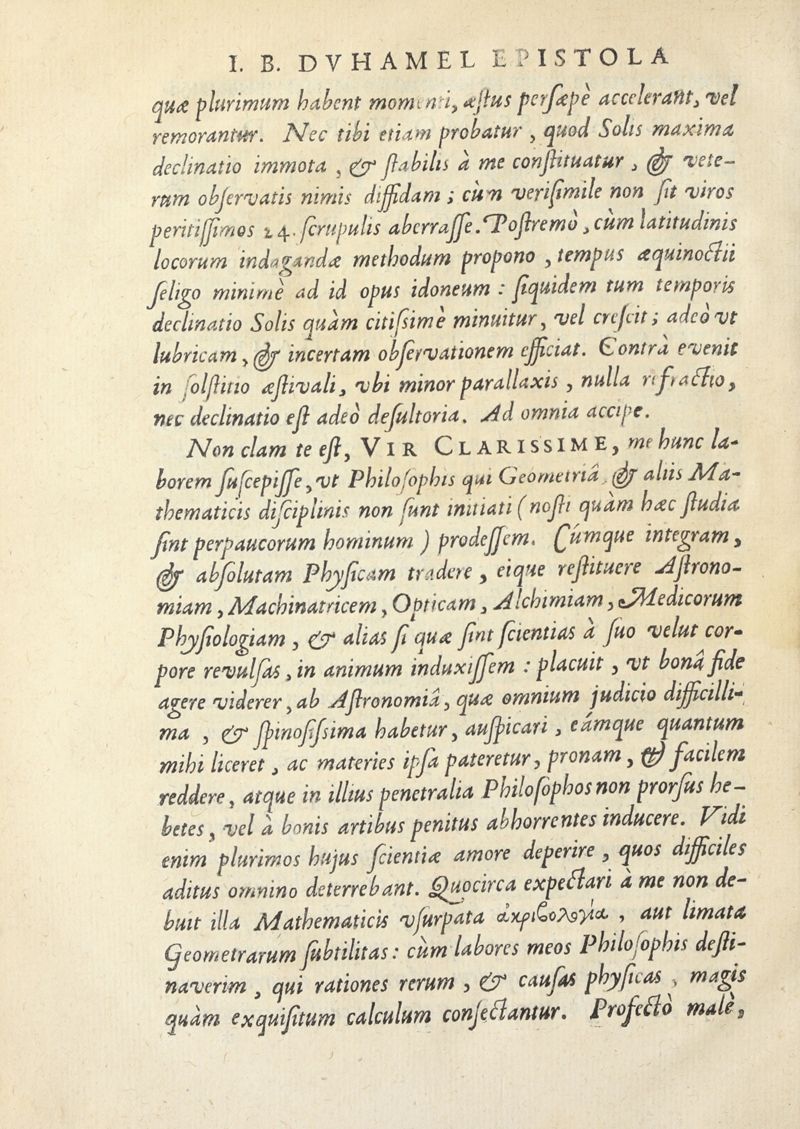 I. B. DVHAMEL EPISTOLA
quæ plurimum habent momenti, æſtus perſæpè accelerant, vel
remorantur. Nec tibi etiam probatur, quod Solis maxima
declinatio immota, & ſtabilis à me conſtituatur, & vete-
rum obſervatis nimis diffidam; cùm veriſimile non ſit viros
peritiſſimos 24. ſcrupulis aberraſſe. Poſtremò, cùm latitudinis
locorum indagandæ methodum propono, tempus æquinoctii
ſeligo minimè ad id opus idoneum: ſiquidem tum temporis
declinatio Solis quàm citiſsimè minuitur, vel creſcit; adeò vt
lubricam, & incertam obſervationem efficiat. Contrà evenit
in ſolſtitio æſtivali, vbi minor parallaxis, nulla refractio,
nec declinatio eſt adeò deſultoria. Ad omnia accipe.
Non clam te eſt, VIR CLARISSIME, me hunc la-
borem ſuſcepiſſe, vt Philoſophis qui Geometriâ, & aliis Ma-
thematicis diſciplinis non ſunt initiati (noſti quàm hæc ſtudia
ſint perpaucorum hominum) prodeſſem. Cúmque integram,
& abſolutam Phyſicam tradere, eique reſtituere Aſtrono-
miam, Machinatricem, Opticam, Alchimiam, Medicorum
Phyſiologiam, & alias ſi quæ ſint ſcientias à ſuo velut cor-
pore revulſas, in animum induxiſſem: placuit, vt bonâ fide
agere viderer, ab Aſtronomiâ, quæ omnium judicio difficilli-
ma, & ſpinoſiſsima habetur, auſpicari, eámque quantum
mihi liceret, ac materies ipſa pateretur, pronam, & facilem
reddere, atque in illius penetralia Philoſophos non prorſus he-
betes, vel à bonis artibus penitus abhorrentes inducere. Vidi
enim plurimos hujus ſcientiæ amore deperire, quos difficiles
aditus omnino deterrebant. Quocirca expectari à me non de-
buit illa Mathematicis vſurpata ἀκριβολογία, aut limata
Geometrarum ſubtilitas: cùm labores meos Philoſophis deſti-
naverim, qui rationes rerum, & cauſas phyſicas, magis
quàm exquiſitum calculum conſectantur. Profectò malè,